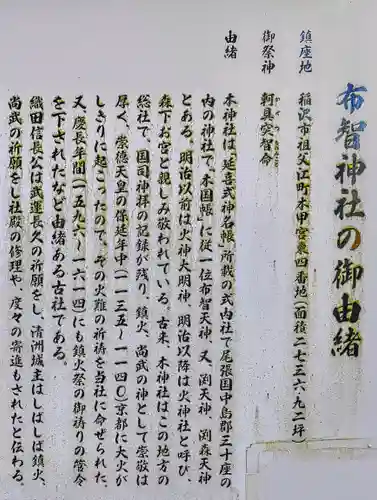 布智神社の御由緒
鎮座地　稲沢市祖父江町本甲宮東四番地(面積二七三六・九二坪)
御祭神　軻具突智命
由緒
本神社は「延喜式神名帳」所載の式内社で尾張国中島郡三十座の
内の神社で、「本国帳」に従一位布智天神、又、渕天神、渕森天神
とある。明治以前は火神大明神、明治以降は火神社と呼び、
森下お宮と親しみ敬われている。古来、本神社はこの地方の
総社で、国司神拝の記録が残り、鎮火、尚武の神として崇敬は
厚く、崇徳天皇の保延年中(一一三五～一一四〇)京都に大火が
しきりに起こったので、その火難の祈祷を当社に命ぜられた、
又、慶長年間(一五九六～一六一四)にも鎮火祭の御祷りの管令
を下されたなど由緒ある古社である。
織田信長公は武運長久の祈願をし、清洲城主はしばしば鎮火、
尚武の祈願をし社殿の修理や、度々の寄進もされたと伝わる。